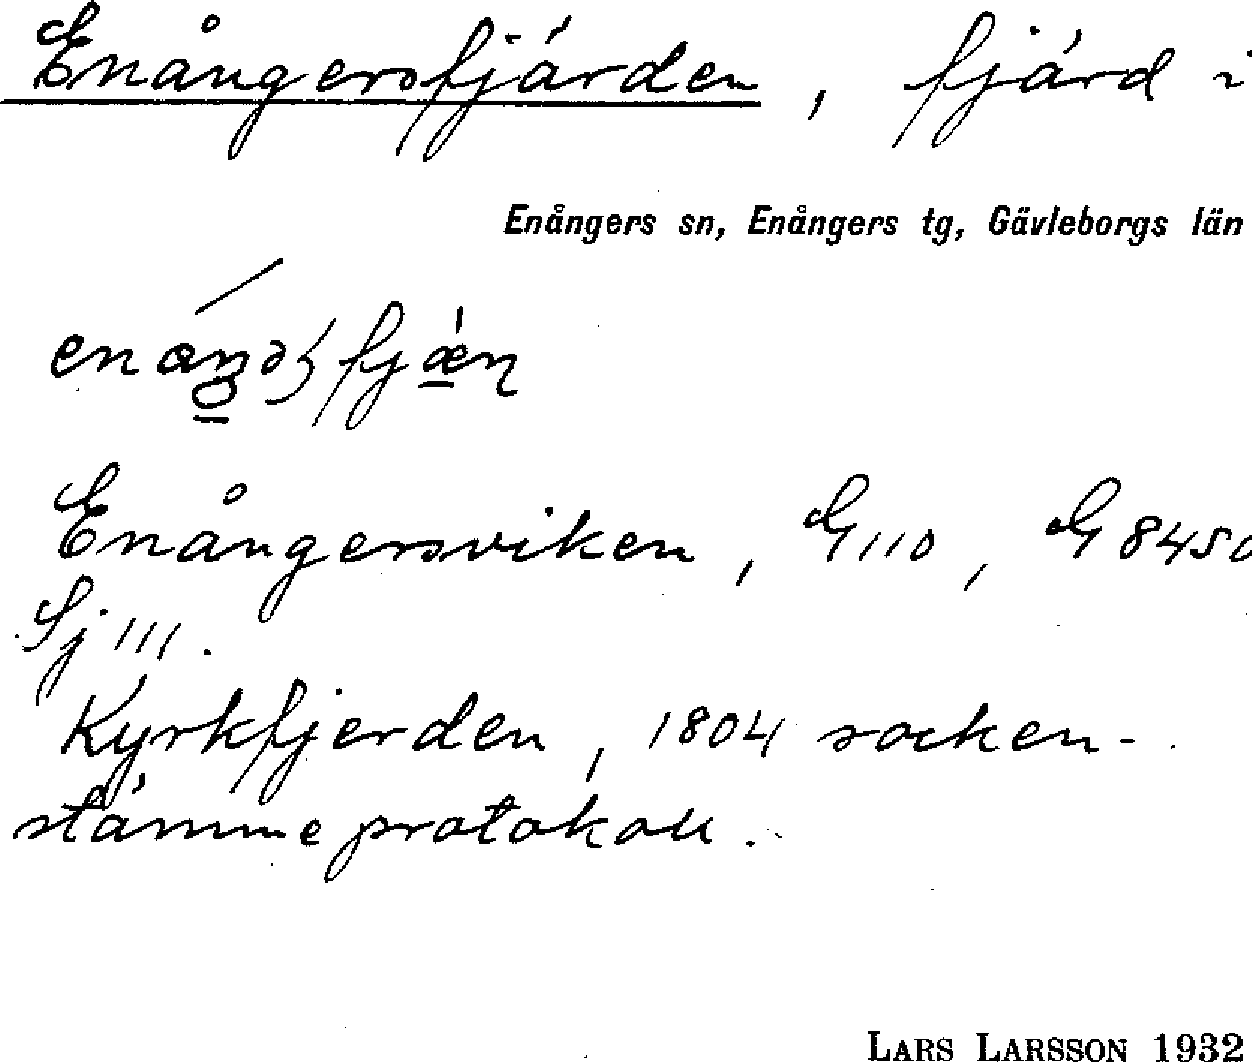 Enångersfjärden, fjärd i
Enångers sn, Enångers tg, Gävleborgs län
Enångersviken, G 110, G 8450
Sj 111.
Kyrkfjerden, 1804 socken-
stämmeprotokoll.
LARS LARSSON 1932